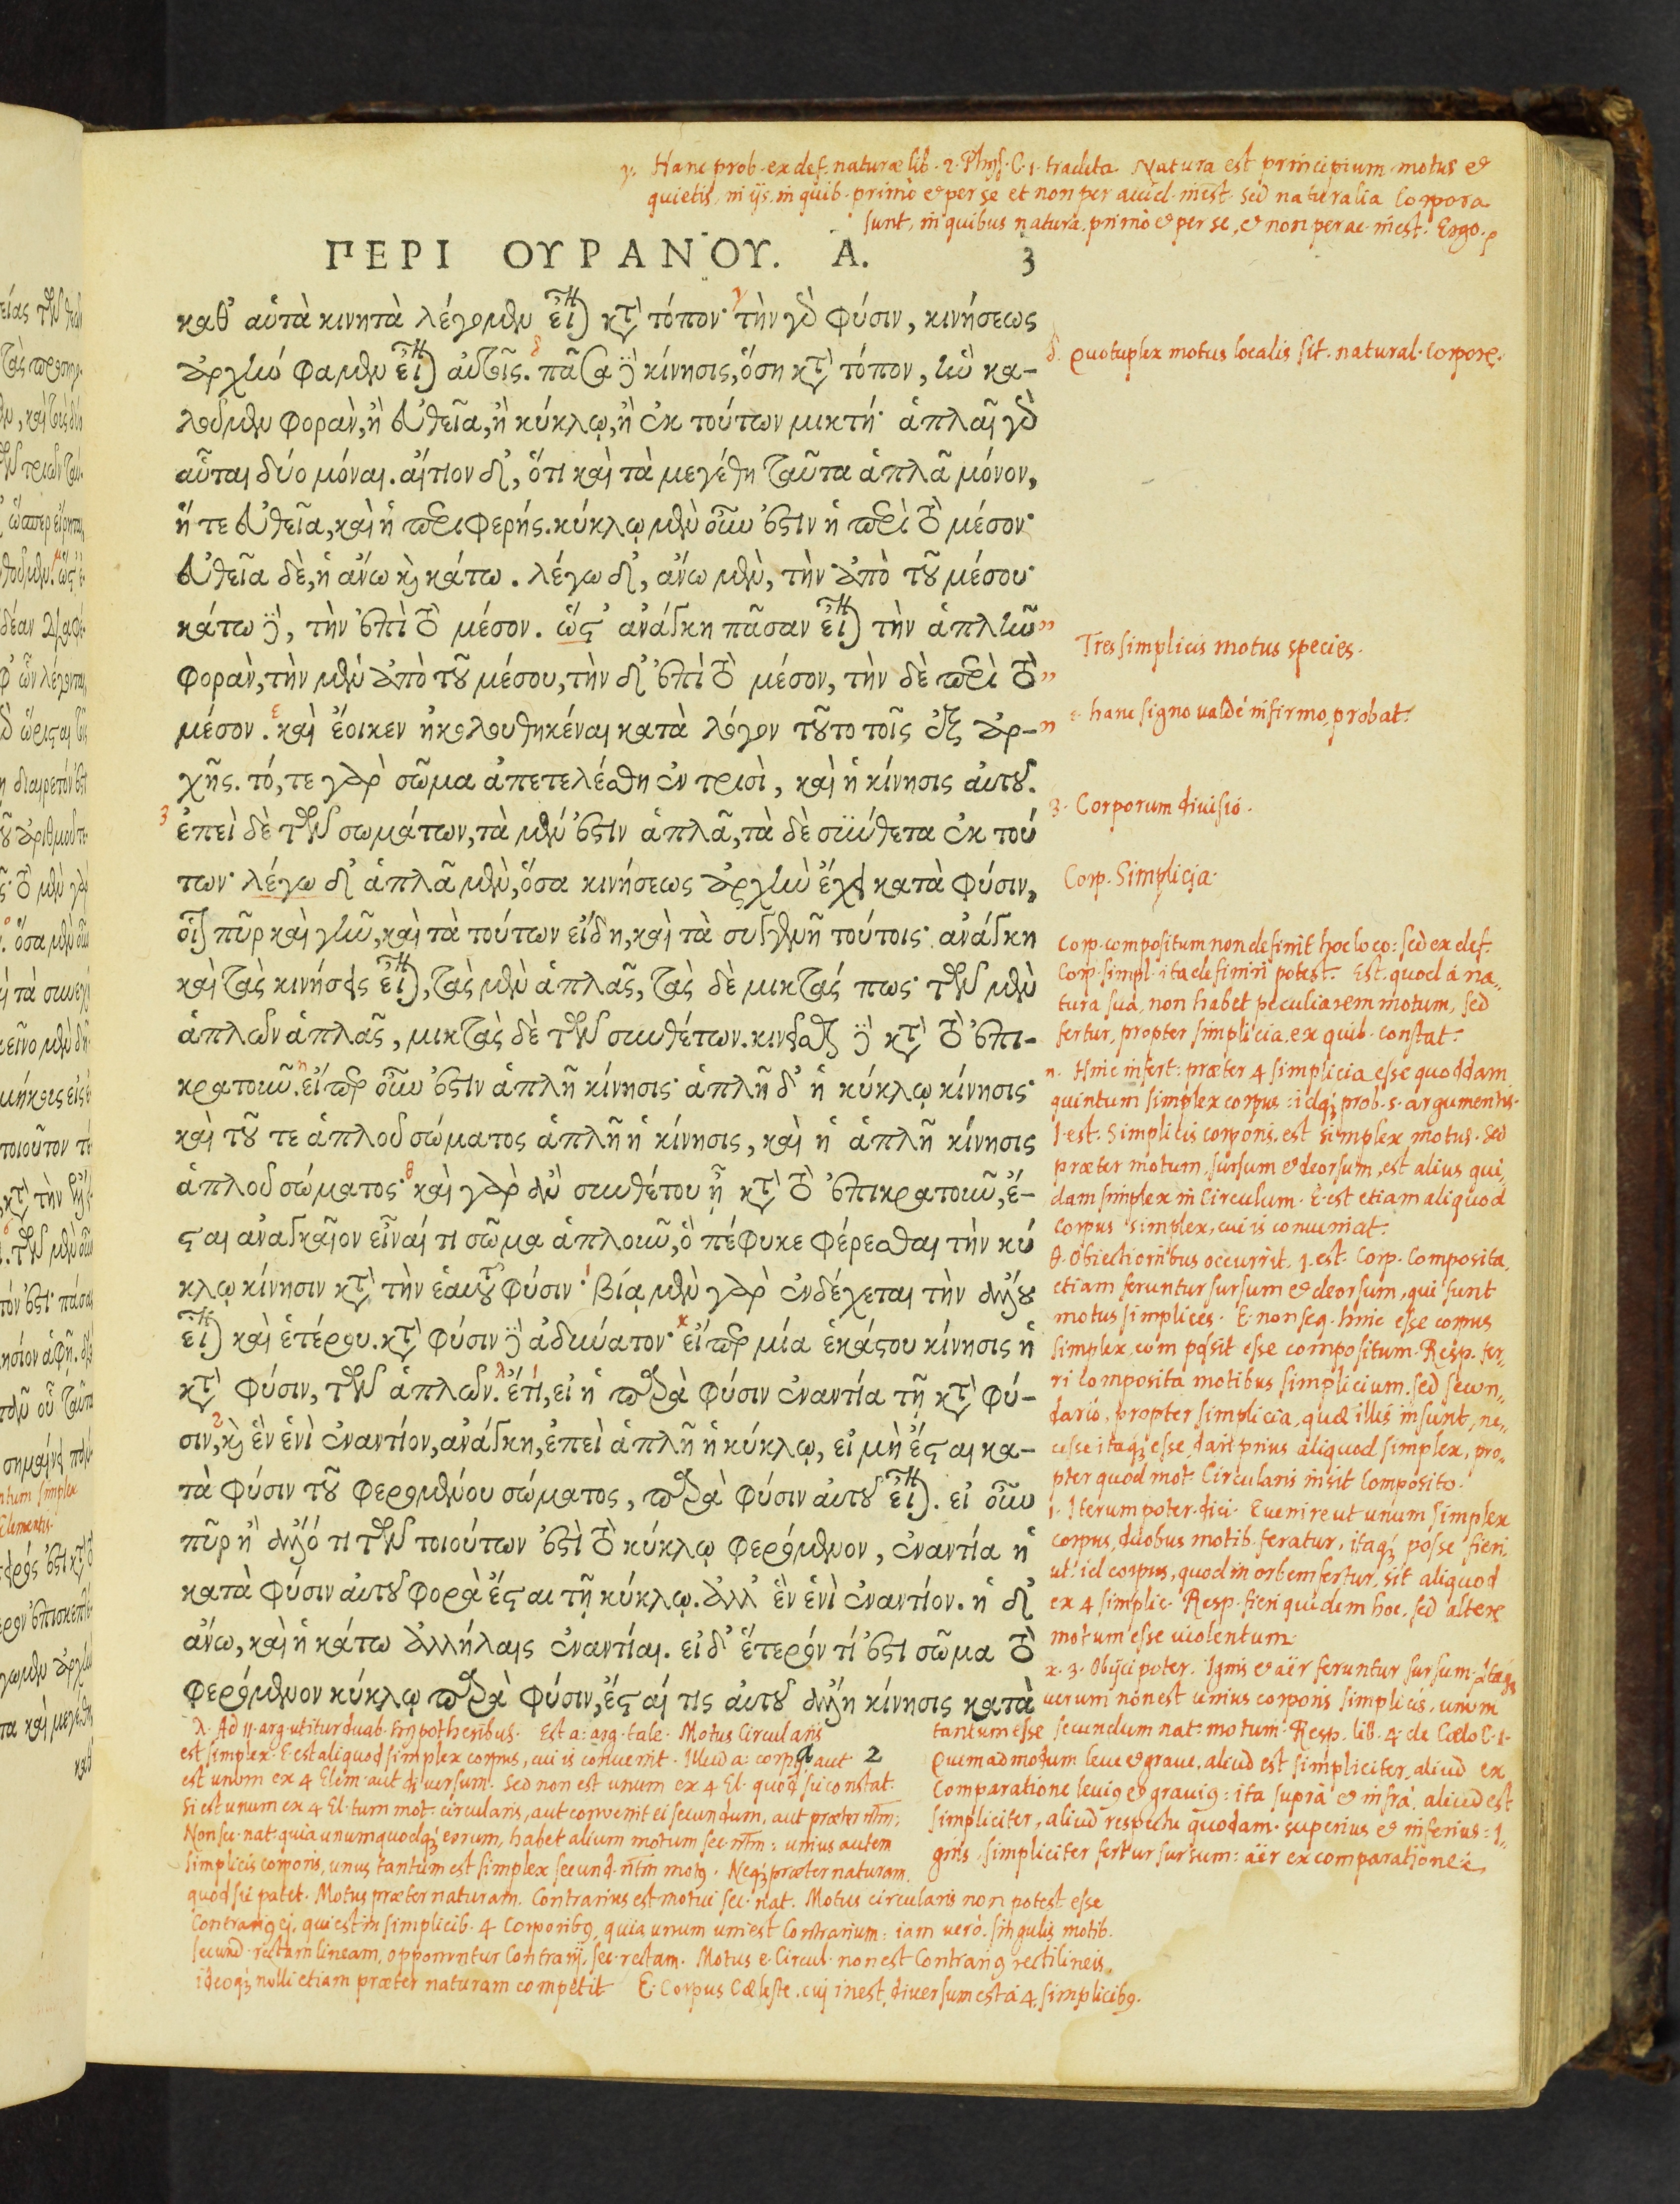 γ. Hanc prob. ex def. naturæ lib. 2. Phys. C. 1. tradita. Natura est principium motus et
quietis, in ijs, in quib. primo et per se et non per accid. inest. Sed naturalia Corpora
sunt, in quibus natura primò et per se, et non per ac. inest. Ergo.
ΠΕΡΙ ΟΥΡΑΝΟΥ. Α. 3
καθ' αὑτὰ κινητὰ λέγομεν εἶναι κατὰ τόπον· τὴν γὰρ φύσιν, κινήσεως
ἀρχὴν φαμὲν εἶναι αὐτοῖς. πᾶσα δὲ κίνησις, ὅση κατὰ τόπον, ἣν κα-
λοῦμεν φορὰν, ἢ εὐθεῖα, ἢ κύκλῳ, ἢ ἐκ τούτων μικτή· ἁπλαῖ γὰρ
αὗται δύο μόναι. αἴτιον δ', ὅτι καὶ τὰ μεγέθη ταῦτα ἁπλᾶ μόνον,
ἥ τε εὐθεῖα, καὶ ἡ περιφερής. κύκλῳ μὲν οὖν ἐστὶν ἡ περὶ τὸ μέσον·
εὐθεῖα δὲ, ἡ ἄνω καὶ κάτω. λέγω δ', ἄνω μὲν, τὴν ἀπὸ τοῦ μέσου·
κάτω δὲ, τὴν ἐπὶ τὸ μέσον. ὥστ' ἀνάγκη πᾶσαν εἶναι τὴν ἁπλῆν
φορὰν, τὴν μὲν ἀπὸ τοῦ μέσου, τὴν δ' ἐπὶ τὸ μέσον, τὴν δὲ περὶ τὸ
μέσον. καὶ ἔοικεν ἠκολουθηκέναι κατὰ λόγον τοῦτο τοῖς ἐξ ἀρ-
χῆς. τό, τε γὰρ σῶμα ἀπετελέσθη ἐν τρισὶ, καὶ ἡ κίνησις αὐτοῦ.
ἐπεὶ δὲ τῶν σωμάτων, τὰ μὲν ἐστὶν ἁπλᾶ, τὰ δὲ σύνθετα ἐκ τού
των· λέγω δ' ἁπλᾶ μὲν, ὅσα κινήσεως ἀρχὴν ἔχει κατὰ φύσιν,
οἷον πῦρ καὶ γῆν, καὶ τὰ τούτων εἴδη, καὶ τὰ συγγενῆ τούτοις· ἀνάγκη
καὶ τὰς κινήσεις εἶναι, τὰς μὲν ἁπλᾶς, τὰς δὲ μικτάς πως· τῶν μὲν
ἁπλῶν ἁπλᾶς, μικτὰς δὲ τῶν συνθέτων. κινεῖσθαι δὲ κατὰ τὸ ἐπι-
κρατοῦν. εἴπερ οὖν ἐστὶν ἁπλῆ κίνησις· ἁπλῆ δ' ἡ κύκλῳ κίνησις·
καὶ τοῦ τε ἁπλοῦ σώματος ἁπλῆ ἡ κίνησις, καὶ ἡ ἁπλῆ κίνησις
ἁπλοῦ σώματος· καὶ γὰρ ἂν συνθέτου ᾖ κατὰ τὸ ἐπικρατοῦν, ἔ-
σται ἀναγκαῖον εἶναί τι σῶμα ἁπλοῦν, ὃ πέφυκε φέρεσθαι τὴν κύ
κλῳ κίνησιν κατὰ τὴν ἑαυτοῦ φύσιν· βίᾳ μὲν γὰρ ἐνδέχεται τὴν ἄλλου
εἶναι καὶ ἑτέρου. κατὰ φύσιν δὲ ἀδύνατον· εἴπερ μία ἑκάστου κίνησις ἡ
κατὰ φύσιν, τῶν ἁπλῶν. ἔτι, εἰ ἡ παρὰ φύσιν ἐναντία τῇ κατὰ φύ-
σιν, καὶ ἓν ἑνὶ ἐναντίον, ἀνάγκη, ἐπεὶ ἁπλῆ ἡ κύκλῳ, εἰ μὴ ἔσται κα-
τὰ φύσιν τοῦ φερομένου σώματος, παρὰ φύσιν αὐτοῦ εἶναι. εἰ οὖν
πῦρ ἢ ἄλλό τι τῶν τοιούτων ἐστὶ τὸ κύκλῳ φερόμενον, ἐναντία ἡ
κατὰ φύσιν αὐτοῦ φορὰ ἔσται τῇ κύκλῳ. ἀλλ' ἓν ἑνὶ ἐναντίον. ἡ δ'
ἄνω, καὶ ἡ κάτω ἀλλήλαις ἐναντίαι. εἰ δ' ἕτερόν τί ἐστι σῶμα τὸ
φερόμενον κύκλῳ παρὰ φύσιν, ἔσται τις αὐτοῦ ἄλλη κίνησις κατὰ
a 2
δ. Quotuplex motus localis sit. natural. corpore.
Tres simplicis motus species.
ε. hanc signo valdè infirmo, probat.
3. Corporum divisio.
Corp. Simplicia.
Corp. compositum non definit hoc loco: sed ex def.
Corp. simpl. ita definiri potest. Est. quod à na-
tura sua, non habet peculiarem motum, sed
fertur, propter simplicia, ex quib. constat.
n. Hinc infert: præter 4 simplicia esse quoddam
quintum simplex corpus: idq; prob. 5. argumentis.
1. est. Simplicis corporis, est simplex motus. Sed
præter motum, sursum et deorsum, est alius qui-
dam simplex in Circulum. E. est etiam aliquod
corpus simplex, cui is conueniat.
θ. Obiectionibus occurrit. 1. est. Corp. Composita,
etiam feruntur sursum et deorsum, qui sunt
motus simplices. E. non seq. hinc esse corpus
simplex, cùm possit esse compositum. Resp. fer-
ri Composita motibus simplicium. sed secun-
dariò, propter simplicia, quæ illis insunt, ne-
cesse itaq; esse, dari prius aliquod simplex, pro-
pter quod mot. Circularis insit Composito.
ι. Iterum poter. dici. Euenire ut unum simplex
corpus, duobus motib. feratur, itaq; posse fieri,
ut id corpus, quod in orbem fertur, sit aliquod
ex 4 simplic. Resp. fieri quidem hoc, sed alterū
motum esse uiolentum.
κ. 3. Obijci poter. Ignis et aër feruntur sursum. Itaq;
uerum non est unius corporis simplicis, unum
tantum esse secundum nat. motum. Resp. lib. 4. de Cælo C. 1.
Quemadmodum leue et graue, aliud est simpliciter, aliud ex
Comparatione leuius et grauius: ita suprà et infrà, aliud est
simpliciter, aliud respectu quodam. superius et inferius: I-
gnis, simpliciter fertur sursum: aër ex comparatione.
λ. Ad 11. arg. utitur duab. hypothesibus. Est a: arg. tale. Motus Circularis
est simplex. E. est aliquod simplex corpus, cui is conuenit. Illud a: corpus aut
est unum ex 4 Elem. aut diuersum. Sed non est unum ex 4 El. quod sic constat.
Si est unum ex 4 El. tum mot. circularis, aut conuenit ei secundum, aut præter ntm:
Non sec. nat. quia unumquodq; eorum, habet alium motum sec. ntm: unius autem
simplicis corporis, unus tantum est simplex secund. ntm motus. Neq; præter naturam.
quod sic patet. Motus præter naturam. Contrarius est motui sec. nat. Motus circularis non potest esse
Contrarius ei, qui est in simplicib. 4 Corporibus, quia unum uni est Contrarium: iam uerò. singulis motib.
secund. rectam lineam, opponuntur Contrarij, sec. rectam. Motus e. Circul. non est Contrarius rectilineis,
ideoq; nulli etiam præter naturam competit E. Corpus Cæleste, cui inest, diuersum est à 4 simplicibus.